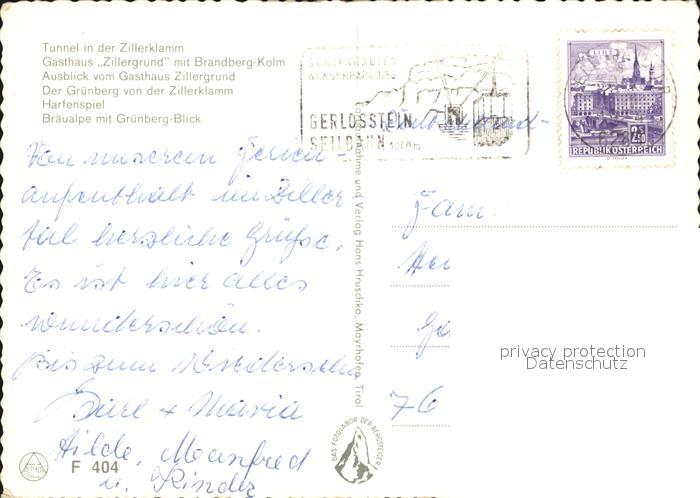 Tunnel in der Zillerklamm
Gasthaus „Zillergrund" mit Brandberg-Kolm
Ausblick vom Gasthaus Zillergrund
Der Grünberg von der Zillerklamm
Harfenspiel
Bräualpe mit Grünberg-Blick
SCHIPARADIES
WANDERPARADIES
GERLOSSTEIN
SEILBAHN
LINZ
2.50
REPUBLIK ÖSTERREICH
Von unserem Ferien-
aufenthalt im Ziller
tal herzliche Grüße.
Es ist hier alles
wunderschön.
Bis zum Wiedersehn
Karl + Maria
Hilde, Manfred
u. Kinder
F 404
Verlag Hans Hruschka, Mayrhofen, Tirol
DAS FOTOLABOR DER BERGSTEIGER
Fam.
76
privacy protection
Datenschutz